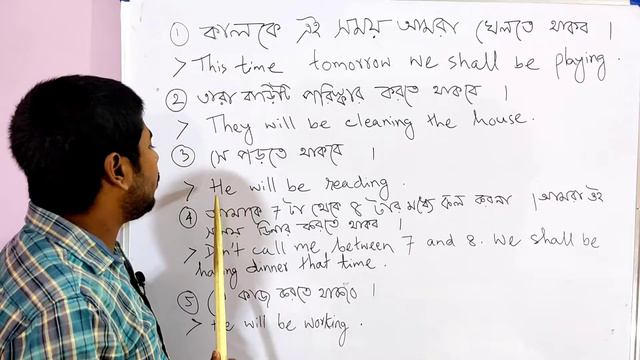 ① কালকে এই সময় আমরা খেলতে থাকব ।
> This time tomorrow we shall be playing.
② তারা বাড়ীটি পরিস্কার করতে থাকবে ।
> They will be cleaning the house.
③ সে পড়তে থাকবে ।
> He will be reading.
④ আমাকে 7 টা থেকে 8 টার মধ্যে কল করনা । আমরা ঐই
সময় ডিনার করতে থাকব ।
> Don't call me between 7 and 8. We shall be
having dinner that time.
⑤ কাজ করতে থাকবে ।
> He will be working.